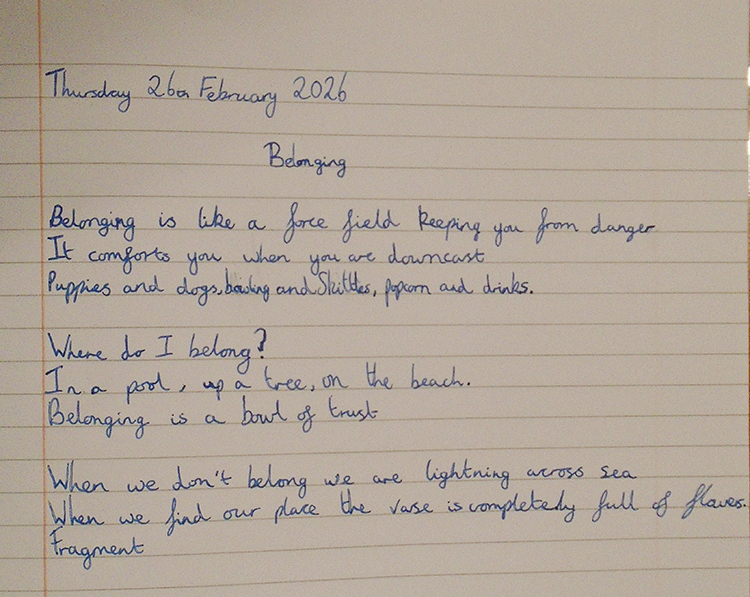 Thursday 26th February 2026
Belonging
Belonging is like a force field keeping you from danger
It comforts you when you are downcast
Puppies and dogs, bowling and Skittles, popcorn and drinks.
Where do I belong?
In a pool, up a tree, on the beach.
Belonging is a bowl of trust
When we don't belong we are lightning across sea
When we find our place the vase is completely full of
Fragment